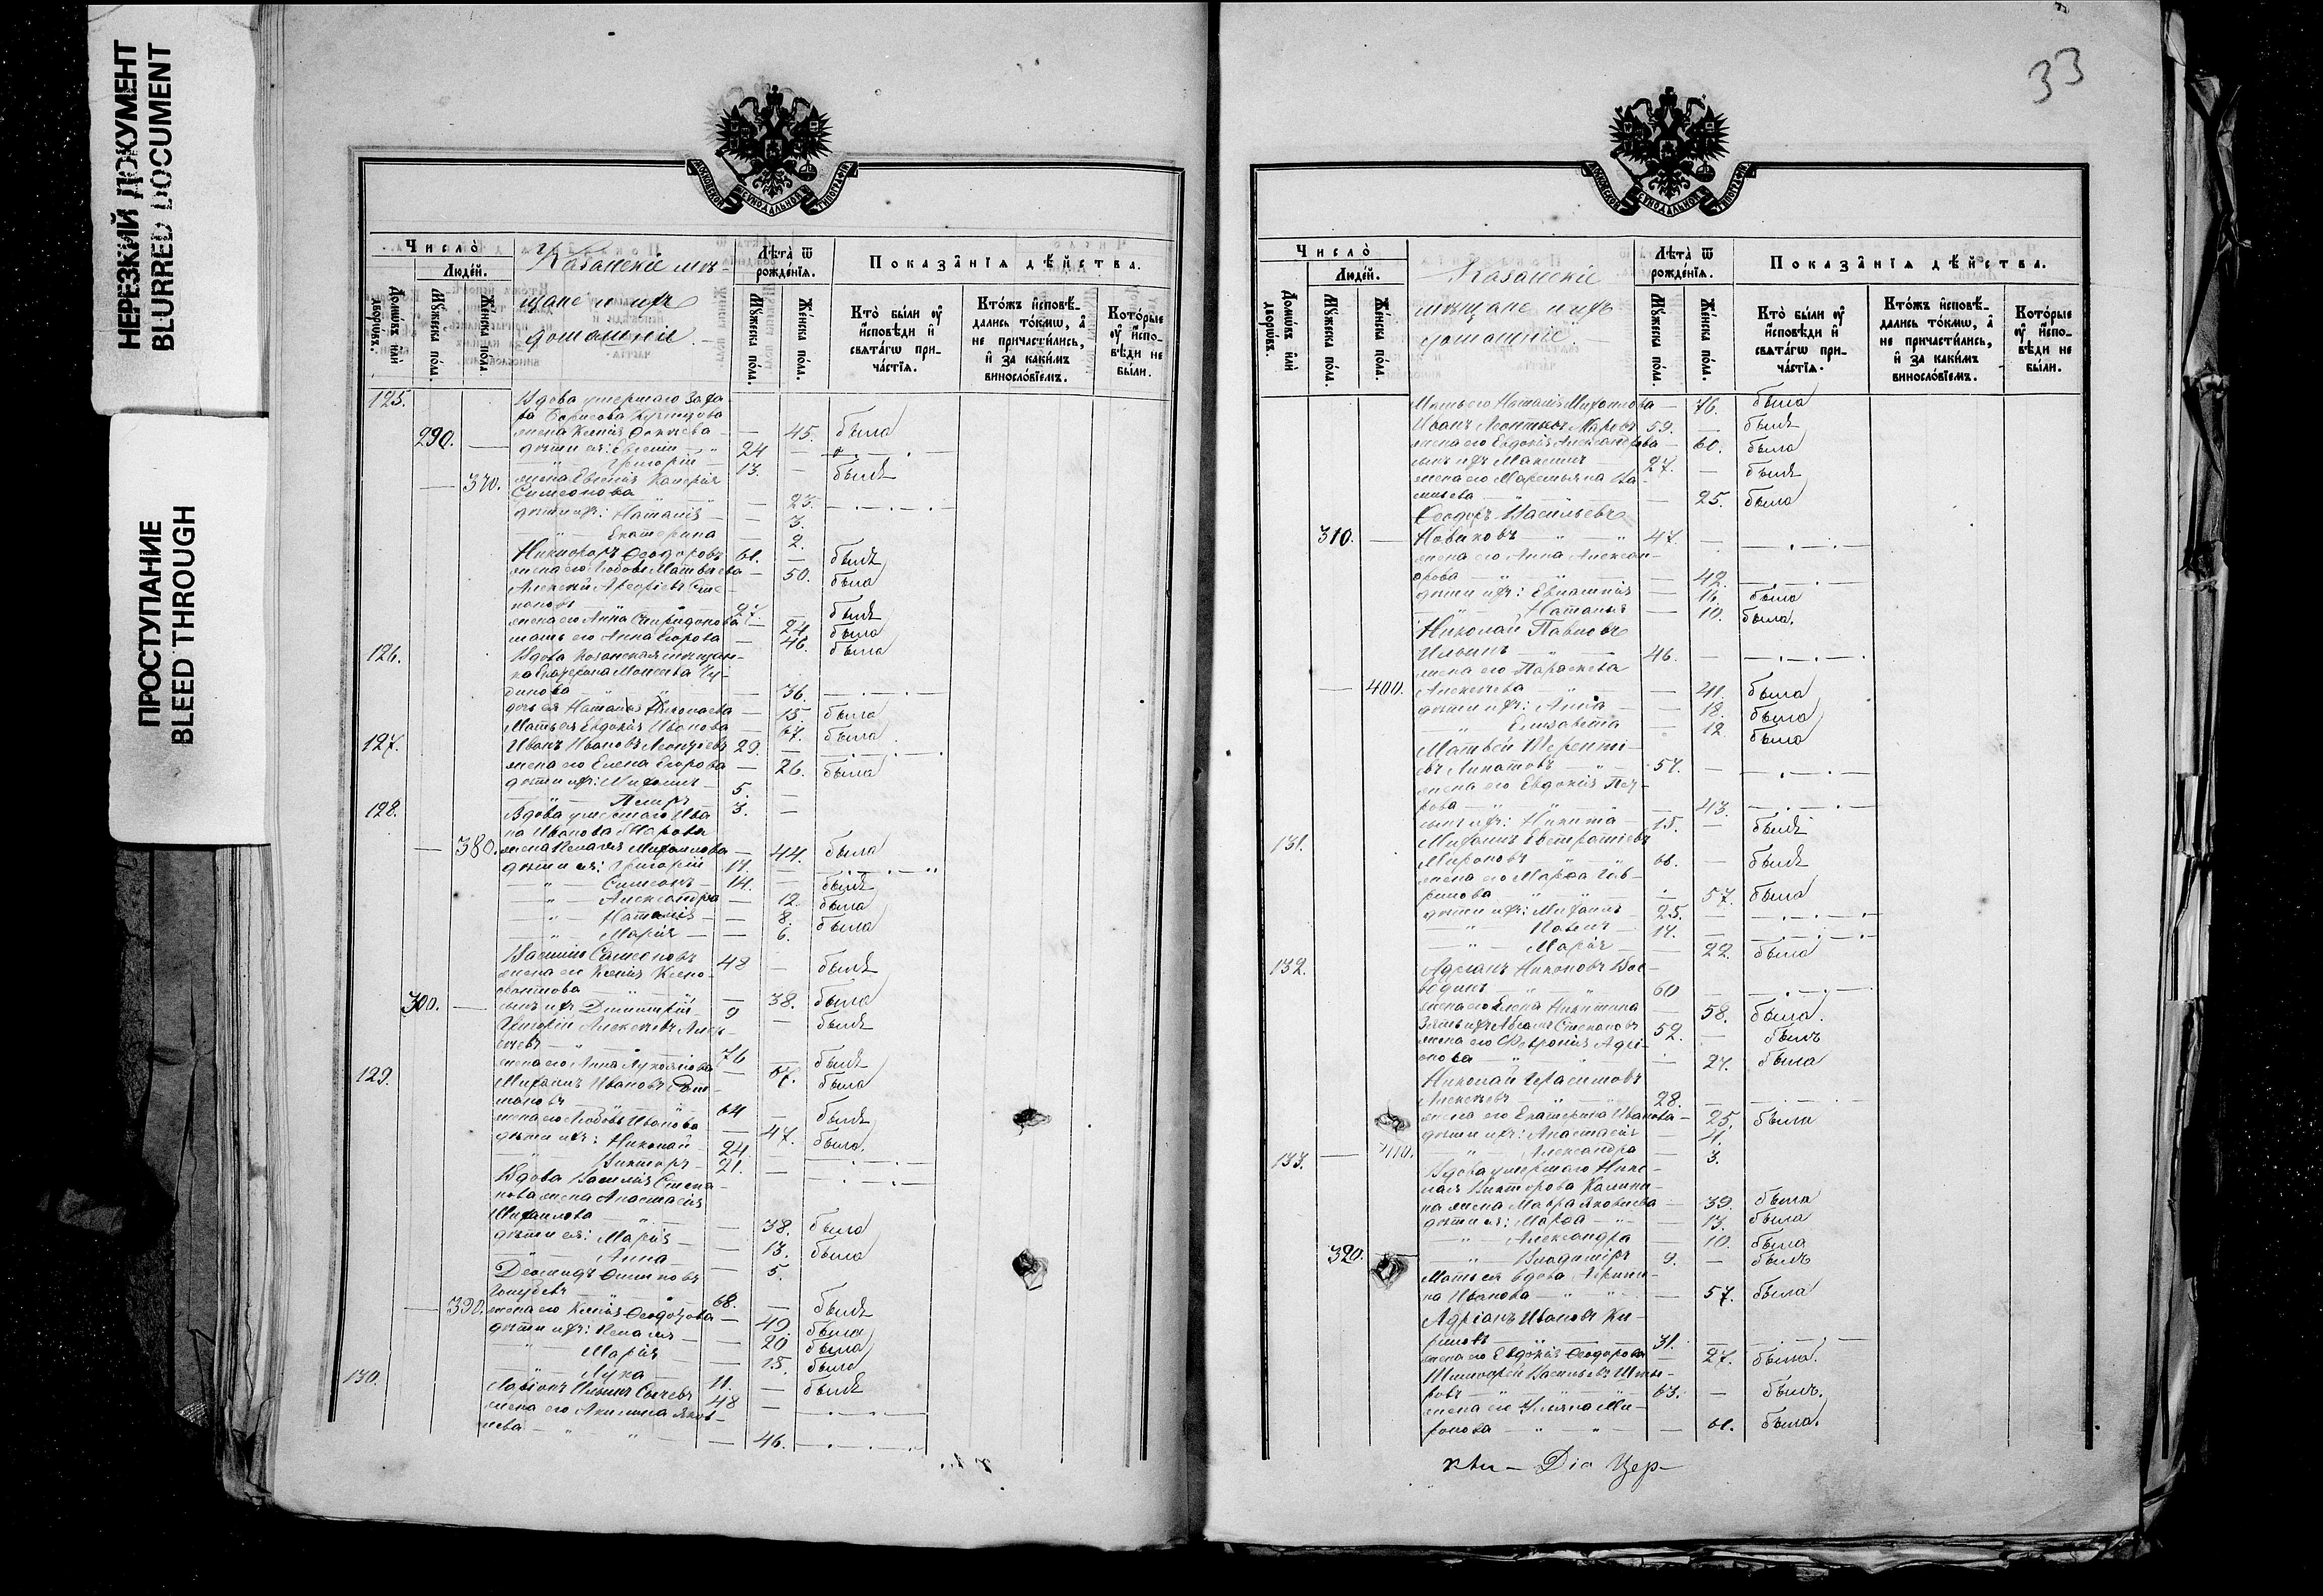 НЕРЕЗКИЙ ДОКУМЕНТ
BLURRED DOCUMENT
ПРОСТУПАНИЕ
BLEED THROUGH
МОСКОВСКОЙ СѴНОДАЛЬНОЙ ТИПОГРАФІИ
Число̀
Людей.
Домѡвъ или дворѡвъ.
Мꙋжеска пола.
Женска пола.
Казанскіе мѣ-
щане и ихъ
домашніе.
Лѣта̀ ѿ рожденїѧ.
Мꙋжеска пола.
Женска пола.
Показанїѧ дѣйства.
Кто̀ были ᲂу҆ исповѣди и свѧтагѡ причастїѧ.
Ктожъ исповѣдались токмѡ, а не причастились, и за какимъ винословїемъ.
Которые ᲂу҆ исповѣди не были.
125. Вдова умершаго Заха-
ра Борисова Кузнецова
290. — жена Ксенія — 45. была
дѣти ея: Евгеній 24 —
Григорій 13. — былъ
— 370. жена Евгенія Валерія
Симеонова — 23.
дѣти ихъ: Наталія — 3.
Екатерина — 2.
Никифоръ Ѳеодоровъ 61. — былъ
жена его Любовь Матвѣева — 50. была
Алексѣй Сте-
пановъ 27. былъ
жена его Анна Спиридонова — 24. была
мать его Анна Егорова — 46. была
126. Вдова Казанская мѣщан-
ка Моисеева Чу-
динова — 36.
дочь ея Наталья Николаева — 15. была
Мать ея Евдокія Иванова — 67. была
127. Иванъ Ивановъ Леонтьевъ 29. —
жена его Елена Егорова — 26. была
дѣти ихъ: Михаилъ 5. —
Петръ 3. —
128. Вдова умершаго Ива-
на Иванова
— 380. жена Пелагея Михаилова — 44. была
дѣти ея: Григорій 17. —
Симеонъ 14. — былъ
Александра — 12. была
Наталія — 8. была
Марія — 6.
Василій Симеоновъ 48 — былъ
жена его Ксенія Ксено-
фонтова — 38. была
300. — сынъ ихъ Димитрій 9 — былъ
Григорій Алексѣевъ Алек-
сѣевъ 76 — былъ
жена его Анна Лукоянова — 67. была
129. Михаилъ Ивановъ Рома-
мановъ 64 — былъ
жена его Любовь Иванова — 47. была.
дѣти ихъ: Николай 24. —
Викторъ 21. —
Вдова Василія Степа-
нова жена Анастасія
Михаилова — 38. была
дѣти ея: Марія — 13. была
Анна — 5.
Диомидъ
Голубевъ 68. — былъ
— 390. жена его Ксенія Ѳеодорова — 49. была
дѣти ихъ: Пелагея — 20. была
Марія — 15. была
Лука 11. — былъ
130. Ларіонъ Ильинъ Сычевъ 48 —
жена его Акилина Яков-
лева — 46.
33
МОСКОВСКОЙ СѴНОДАЛЬНОЙ ТИПОГРАФІИ
Число̀
Людей.
Домѡвъ или дворѡвъ.
Мꙋжеска пола.
Женска пола.
Казанскіе
мѣщане и ихъ
домашніе.
Лѣта̀ ѿ рожденїѧ.
Мꙋжеска пола.
Женска пола.
Показанїѧ дѣйства.
Кто̀ были ᲂу҆ исповѣди и свѧтагѡ причастїѧ.
Ктожъ исповѣдались токмѡ, а не причастились, и за какимъ винословїемъ.
Которые ᲂу҆ исповѣди не были.
Мать его Наталія Михаилова — 76. была
Иванъ 59. — былъ
жена его Евдокія Александрова — 60. была
сынъ ихъ Максимъ 27. — былъ
жена его Маремьяна Ва-
сильева — 25. была
Ѳеодоръ Васильевъ
310. — Новиковъ 47. —
жена его Анна Алексан-
дрова — 42.
дѣти ихъ: Евлампія — 16. была
Наталья — 10. была.
Николай Павловъ
Ильинъ 46. —
жена его Параскева
— 400. Алексѣева — 41. была
дѣти ихъ: Анна — 18. была
Елизавета — 12. была
Матвѣй Теренті-
евъ 57. —
жена его Евдокія Пет-
рова — 43.
сынъ ихъ: Никита 15. — былъ
131. Михаилъ Евстратіевъ
Мироновъ 66. — былъ
жена его Марѳа Гав-
рилова — 57. была
дѣти ихъ: Михаилъ 25. —
Павелъ 17. —
Марія — 22. была
132. Адріанъ Никоновъ Вое-
водинъ 60 —
жена его Елена Никитина — 58. была.
Зять ихъ Абрамъ Степановъ 52. — былъ
жена его Февронія Адрі-
анова — 27. была
Николай Герасимовъ
Алексѣевъ 28. —
жена его Екатерина Иванова — 25. была
дѣти ихъ: Анастасія — 4.
— 410. Александра — 3.
133. Вдова умершаго Нико-
лая Викторова Калини-
на жена Мавра Яковлева — 39. была
дѣти ея: Марѳа — 13. была
Александра — 10. была
320. — Владиміръ 9. — былъ
Мать ея вдова
на Иванова — 57. была
Адріанъ Ивановъ Ки-
риловъ 31. —
жена его Евдокія Ѳеодорова — 27. была.
Тимоѳей Васильевъ
ровъ 63. — былъ.
жена его Ульяна Ми-
ронова — 61. была.
Діа Цер-